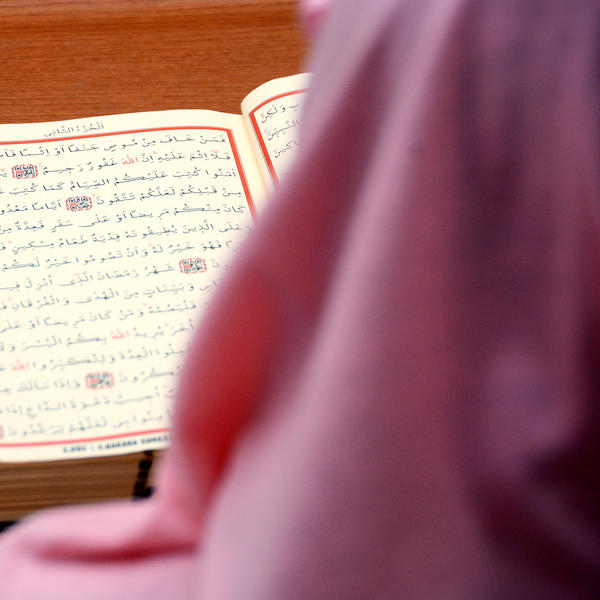 اَلْجُزْءُ الثَّانِى
فَمَنْ خَافَ مِنْ مُوصٍ جَنَفًا اَوْ اِثْمًا
فَلَا اِثْمَ عَلَيْهِ اِنَّ اللهَ غَفُورٌ رَحِيمٌ
اٰمَنُوا كُتِبَ عَلَيْكُمُ الصِّيَامُ كَمَا كُتِبَ
مِنْ قَبْلِكُمْ لَعَلَّكُمْ تَتَّقُونَ اَيَّامًا
كَانَ مِنْكُمْ مَرِيضًا اَوْ عَلٰى سَفَرٍ فَعِدَّةٌ مِنْ
عَلَى الَّذِينَ يُطِيقُونَهُ فِدْيَةٌ طَعَامُ مِسْكِينٍ
فَهُوَ خَيْرٌ لَهُ وَاَنْ تَصُومُوا خَيْرٌ لَكُمْ
شَهْرُ رَمَضَانَ الَّذِى اُنْزِلَ
وَبَيِّنَاتٍ مِنَ الْهُدٰى وَالْفُرْقَانِ
فَلْيَصُمْهُ وَمَنْ كَانَ مَرِيضًا اَوْ عَلٰى
اُخَرَ يُرِيدُ اللهُ بِكُمُ الْيُسْرَ
الْعِدَّةَ وَلِتُكَبِّرُوا اللهَ
وَاِذَا سَاَلَكَ
اُجِيبُ دَعْوَةَ الدَّاعِ اِذَا
بِى لَعَلَّهُمْ يَرْشُدُونَ
وَلٰكِنَّ